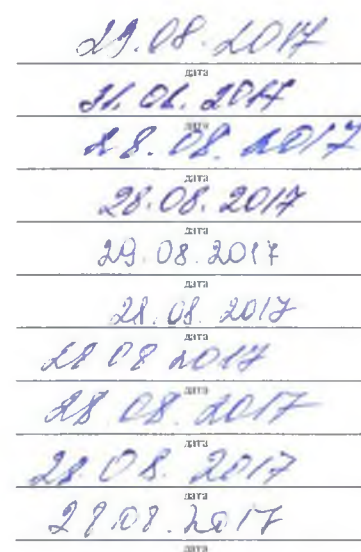 29.08.2017
дата
дата
28.08.2017
дата
28.08.2017
дата
29.08.2017
дата
28.08.2017
дата
28 08 2017
дата
28 08 2017
дата
28.08.2017
дата
28.08.2017
дата